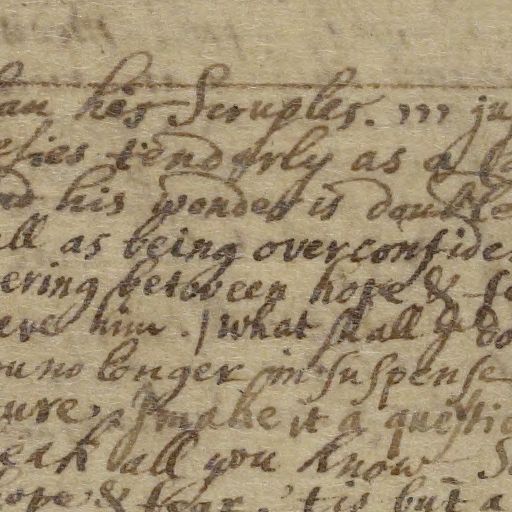 his Scruples. m ju
tenderly as a
his wonder is double
ll as being overconfiden
ering between hope & fe
ere him. / what shall I do
ou no longer in suspense
ure, I make it a questio
eak all you know
hope & fear, 'tis but a